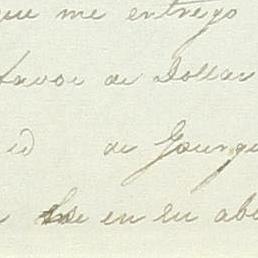 que me entrego
favor de Dollar
id de Gourgu
en su abo